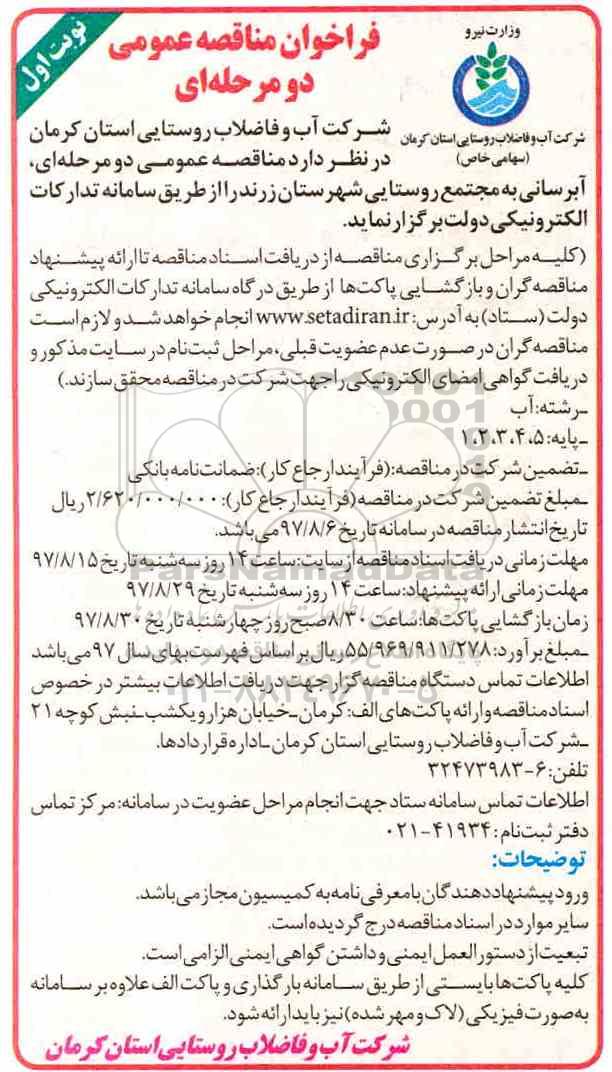 نوبت اول
وزارت نیرو
شرکت آب و فاضلاب روستایی استان کرمان
(سهامی خاص)
فراخوان مناقصه عمومی
دو مرحله‌ای
شرکت آب و فاضلاب روستایی استان کرمان
در نظر دارد مناقصه عمومی دو مرحله‌ای،
آبرسانی به مجتمع روستایی شهرستان زرند را از طریق سامانه تدارکات
الکترونیکی دولت برگزار نماید.
(کلیه مراحل برگزاری مناقصه از دریافت اسناد مناقصه تا ارائه پیشنهاد
مناقصه گران و بازگشایی پاکت‌ها از طریق درگاه سامانه تدارکات الکترونیکی
دولت (ستاد) به آدرس: www.setadiran.ir انجام خواهد شد و لازم است
مناقصه گران در صورت عدم عضویت قبلی، مراحل ثبت نام در سایت مذکور و
دریافت گواهی امضای الکترونیکی را جهت شرکت در مناقصه محقق سازند.)
ـ رشته: آب
ـ پایه: ۱،۲،۳،۴،۵
ـ تضمین شرکت در مناقصه: (فرآیند ارجاع کار): ضمانت نامه بانکی
ـ مبلغ تضمین شرکت در مناقصه (فرآیند ارجاع کار): ۲/۶۲۰/۰۰۰/۰۰۰ ریال
تاریخ انتشار مناقصه در سامانه تاریخ ۹۷/۸/۶ می باشد.
مهلت زمانی دریافت اسناد مناقصه از سایت: ساعت ۱۴ روز سه شنبه تاریخ ۹۷/۸/۱۵
مهلت زمانی ارائه پیشنهاد: ساعت ۱۴ روز سه شنبه تاریخ ۹۷/۸/۲۹
زمان بازگشایی پاکت‌ها: ساعت ۸/۳۰ صبح روز چهارشنبه تاریخ ۹۷/۸/۳۰
ـ مبلغ برآورد: ۵۵/۹۶۹/۹۱۱/۲۷۸ ریال بر اساس فهرست بهای سال ۹۷ می باشد
اطلاعات تماس دستگاه مناقصه گزار جهت دریافت اطلاعات بیشتر در خصوص
اسناد مناقصه و ارائه پاکت‌های الف: کرمان ـ خیابان هزار و یکشب ـ نبش کوچه ۲۱
ـ شرکت آب و فاضلاب روستایی استان کرمان ـ اداره قراردادها.
تلفن: ۶-۳۲۴۷۳۹۸۳
اطلاعات تماس سامانه ستاد جهت انجام مراحل عضویت در سامانه: مرکز تماس
دفتر ثبت نام: ۴۱۹۳۴-۰۲۱
توضیحات:
ورود پیشنهاد دهندگان با معرفی نامه به کمیسیون مجاز می باشد.
سایر موارد در اسناد مناقصه درج گردیده است.
تبعیت از دستورالعمل ایمنی و داشتن گواهی ایمنی الزامی است.
کلیه پاکت‌ها بایستی از طریق سامانه بارگذاری و پاکت الف علاوه بر سامانه
به صورت فیزیکی (لاک و مهر شده) نیز باید ارائه شود.
شرکت آب و فاضلاب روستایی استان کرمان
ParsNamadData
۰۲۱-۸۸۳۴۹۶۷۰-۵